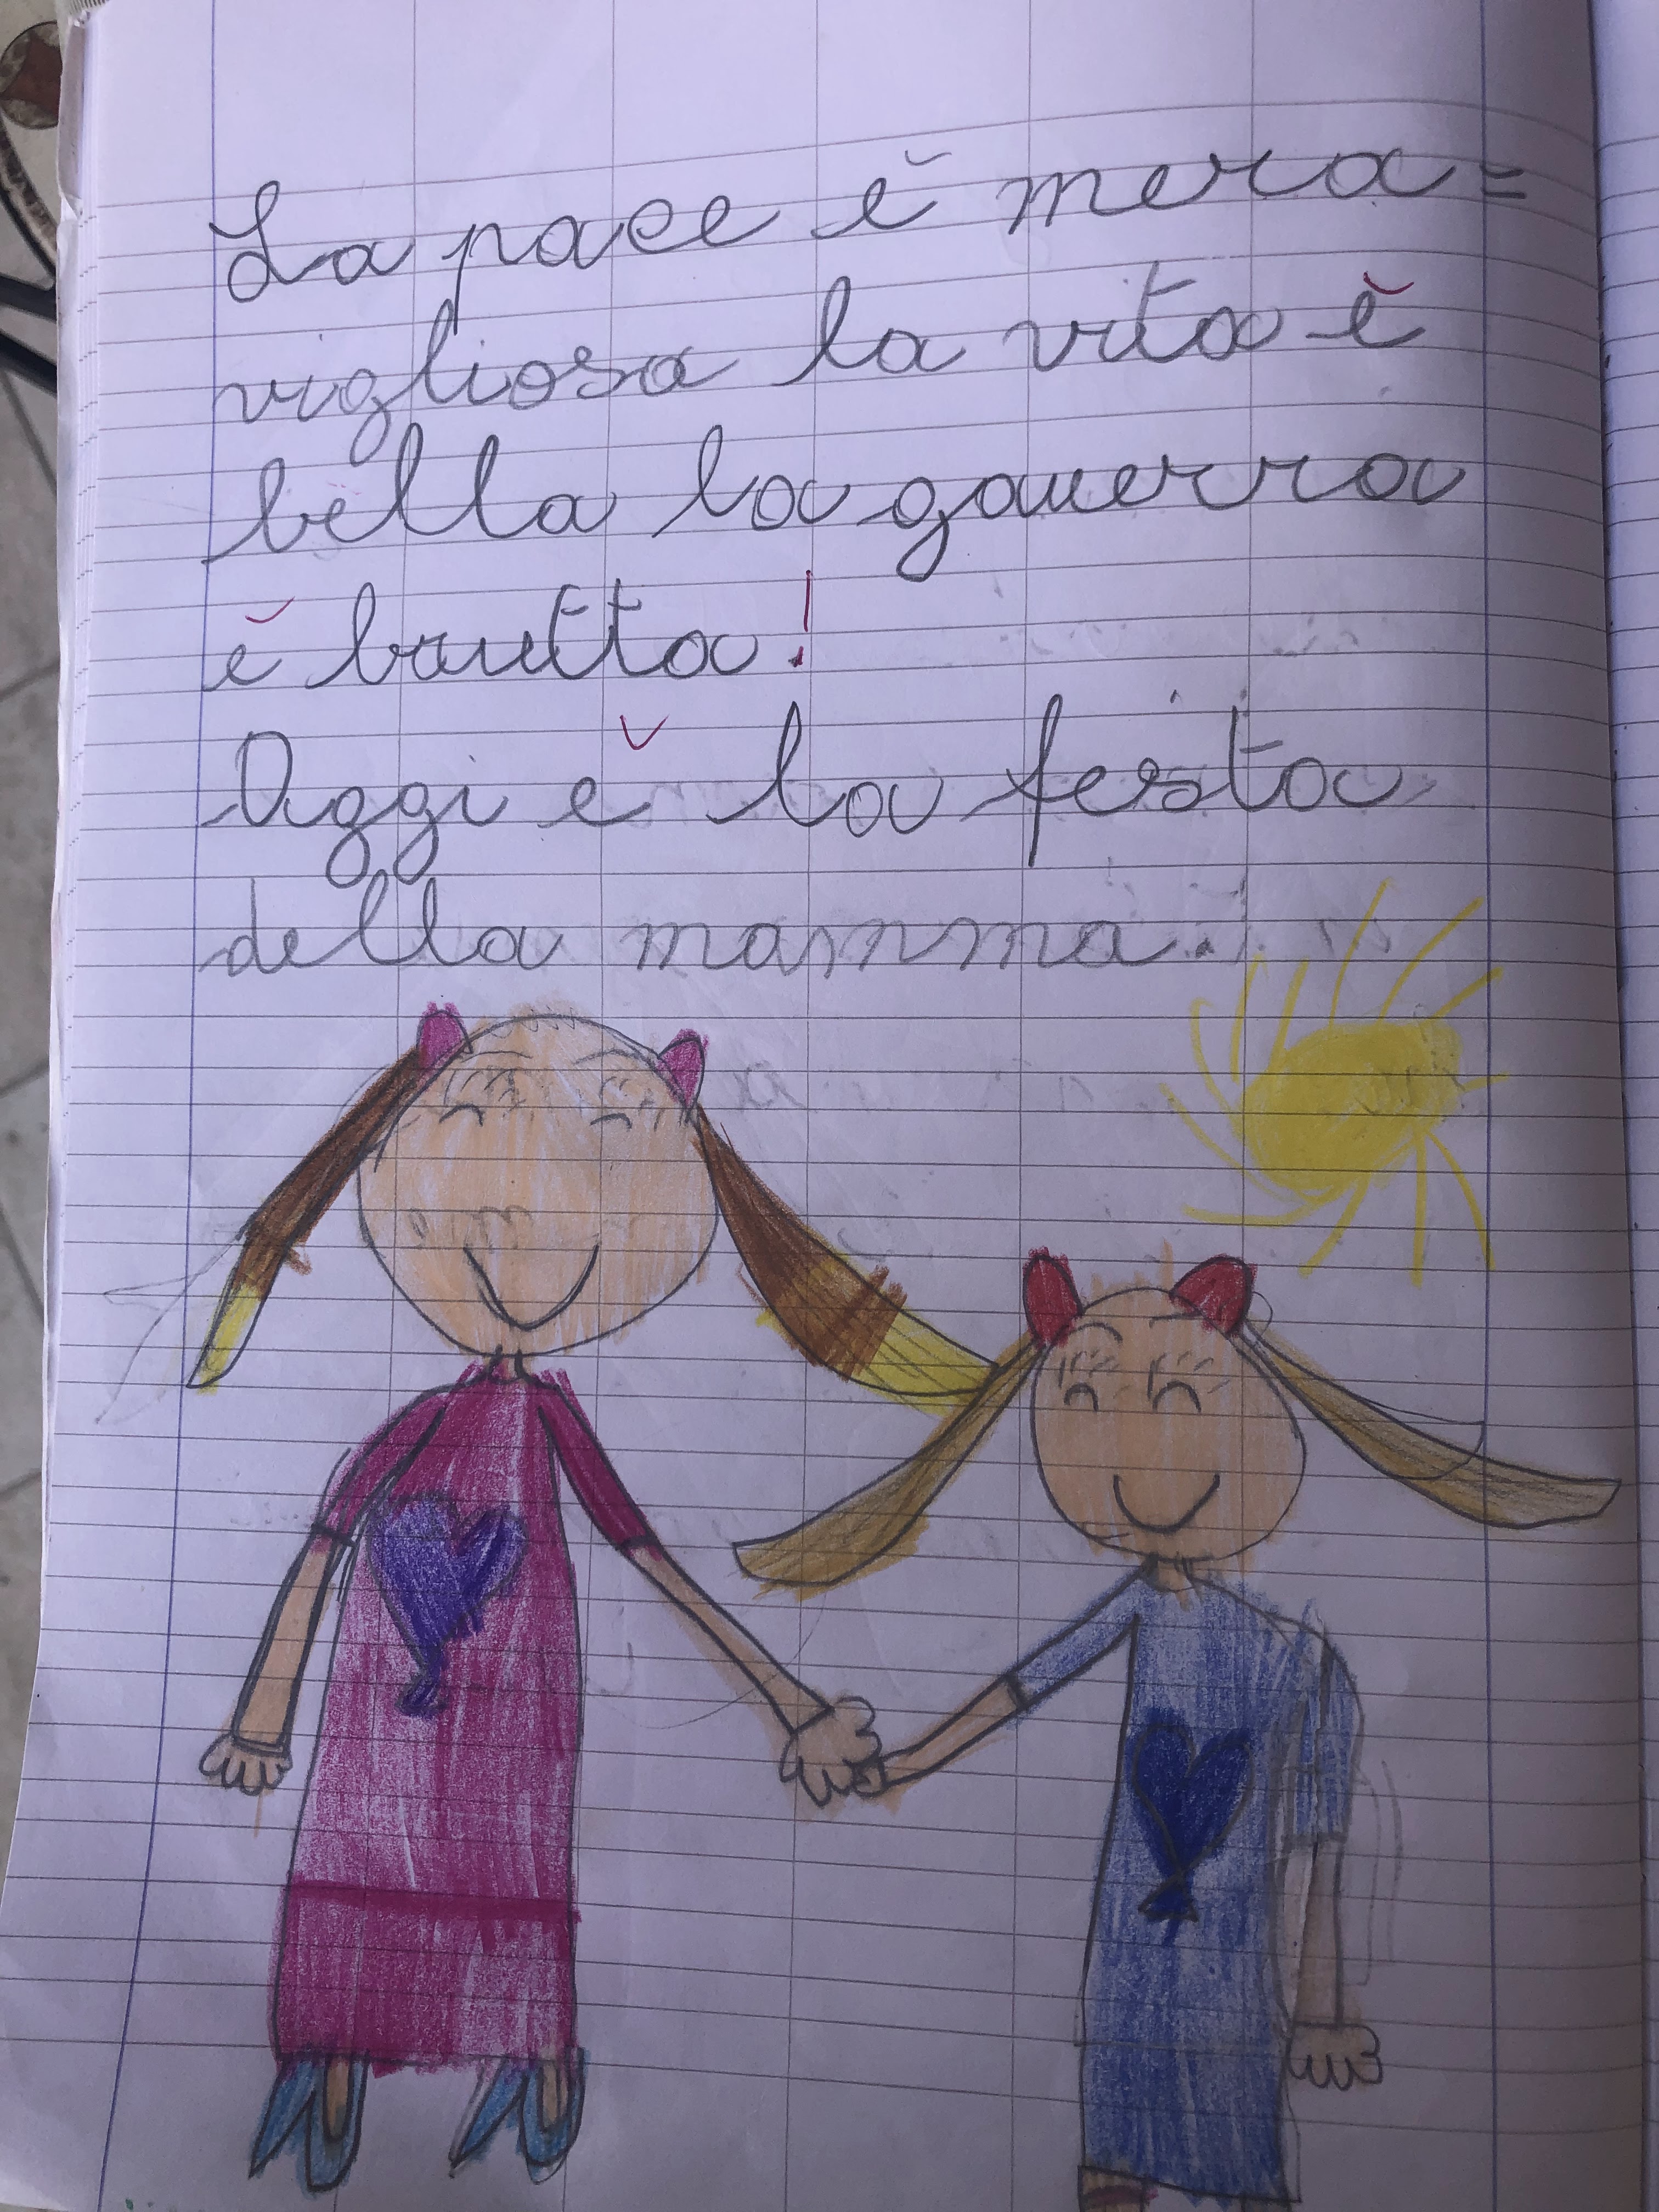 La pace è mera=
vigliosa la vita è
bella la gauerra
è brutta!
Oggi è la festa
della mamma.